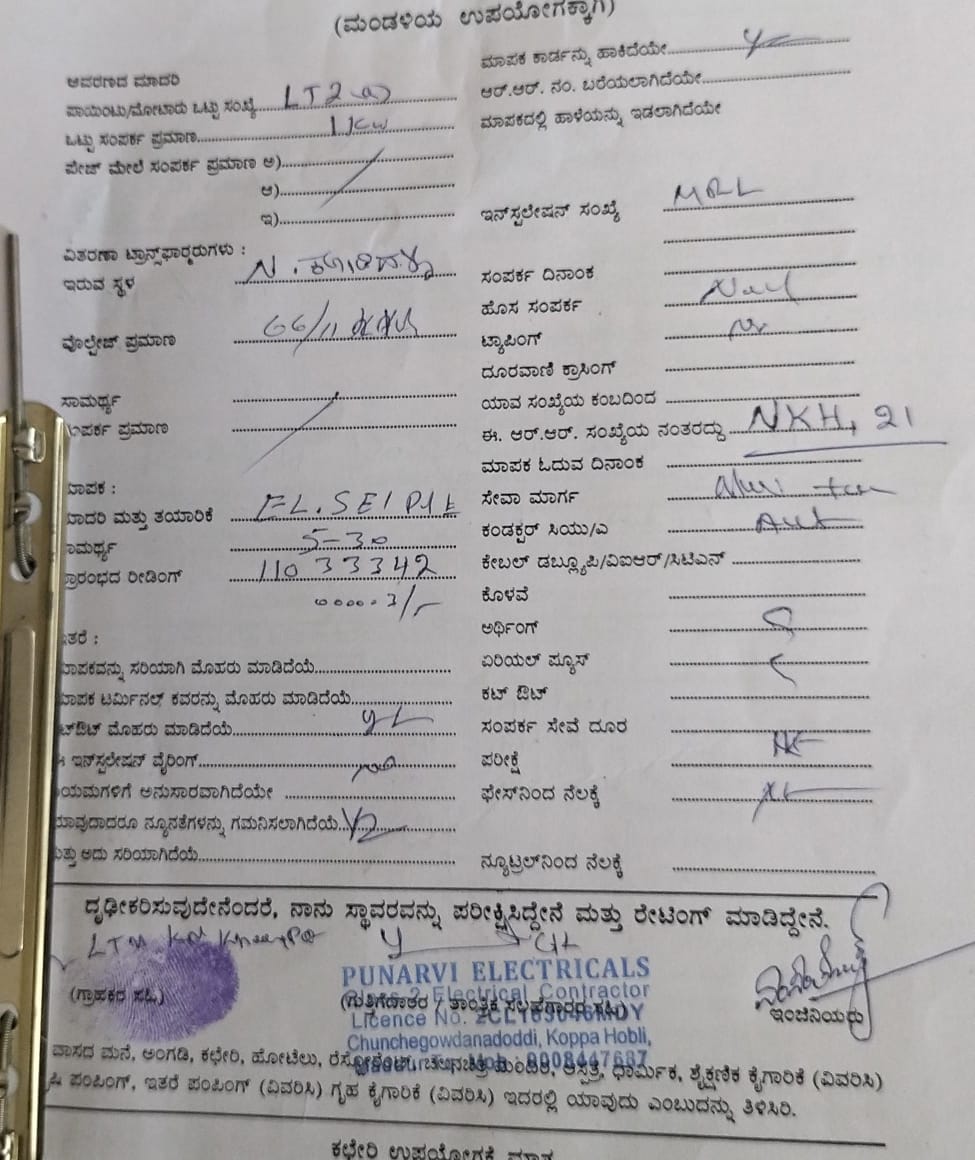 (ಮಂಡಳಿಯ ಉಪಯೋಗಕ್ಕಾಗಿ)
ಆವರಣದ ಮಾದರಿ
ಪಾಯಿಂಟು/ಮೋಟಾರು ಒಟ್ಟು ಸಂಖ್ಯೆ LT2(a)
ಒಟ್ಟು ಸಂಪರ್ಕ ಪ್ರಮಾಣ 1KW
ಪೇಜ್ ಮೇಲೆ ಸಂಪರ್ಕ ಪ್ರಮಾಣ ಅ)
ಆ)
ಇ)
ವಿತರಣಾ ಟ್ರಾನ್ಸ್‌ಫಾರ್ಮರುಗಳು :
ಇರುವ ಸ್ಥಳ
ವೊಲ್ಟೇಜ್ ಪ್ರಮಾಣ 66/11
ಸಾಮರ್ಥ್ಯ
ಪರ್ಕ ಪ್ರಮಾಣ
ಾಪಕ :
ಾದರಿ ಮತ್ತು ತಯಾರಿಕೆ
ಾಮರ್ಥ್ಯ 5-30
್ರಾರಂಭದ ರೀಡಿಂಗ್ 11033342
ತರೆ :
ಾಪಕವನ್ನು ಸರಿಯಾಗಿ ಮೊಹರು ಮಾಡಿದೆಯೆ
ಾಪಕ ಟರ್ಮಿನಲ್ ಕವರನ್ನು ಮೊಹರು ಮಾಡಿದೆಯೆ
ಟ್‌ಔಟ್ ಮೊಹರು ಮಾಡಿದೆಯೆ
ಇನ್‌ಸ್ಟಲೇಷನ್ ವೈರಿಂಗ್
ಯಮಗಳಿಗೆ ಅನುಸಾರವಾಗಿದೆಯೇ
ಯಾವುದಾದರೂ ನ್ಯೂನತೆಗಳನ್ನು ಗಮನಿಸಲಾಗಿದೆಯೆ
ತ್ತು ಅದು ಸರಿಯಾಗಿದೆಯೆ
ಮಾಪಕ ಕಾರ್ಡನ್ನು ಹಾಕಿದೆಯೇ
ಆರ್.ಆರ್. ನಂ. ಬರೆಯಲಾಗಿದೆಯೇ
ಮಾಪಕದಲ್ಲಿ ಹಾಳೆಯನ್ನು ಇಡಲಾಗಿದೆಯೇ
ಇನ್‌ಸ್ಟಲೇಷನ್ ಸಂಖ್ಯೆ
ಸಂಪರ್ಕ ದಿನಾಂಕ
ಹೊಸ ಸಂಪರ್ಕ
ಟ್ಯಾಪಿಂಗ್
ದೂರವಾಣಿ ಕ್ರಾಸಿಂಗ್
ಯಾವ ಸಂಖ್ಯೆಯ ಕಂಬದಿಂದ
ಈ. ಆರ್.ಆರ್. ಸಂಖ್ಯೆಯ ನಂತರದ್ದು NKH, 21
ಮಾಪಕ ಓದುವ ದಿನಾಂಕ
ಸೇವಾ ಮಾರ್ಗ
ಕಂಡಕ್ಟರ್ ಸಿಯು/ಎ
ಕೇಬಲ್ ಡಬ್ಲ್ಯೂಪಿ/ವಿಐಆರ್/ಸಿಟಿಎಸ್
ಕೊಳವೆ
ಅರ್ಥಿಂಗ್
ಏರಿಯಲ್ ಫ್ಯೂಸ್
ಕಟ್ ಔಟ್
ಸಂಪರ್ಕ ಸೇವೆ ದೂರ
ಪರೀಕ್ಷೆ
ಫೇಸ್‌ನಿಂದ ನೆಲಕ್ಕೆ
ನ್ಯೂಟ್ರಲ್‌ನಿಂದ ನೆಲಕ್ಕೆ
ದೃಢೀಕರಿಸುವುದೇನೆಂದರೆ, ನಾನು ಸ್ಥಾವರವನ್ನು ಪರೀಕ್ಷಿಸಿದ್ದೇನೆ ಮತ್ತು ರೇಟಿಂಗ್ ಮಾಡಿದ್ದೇನೆ.
PUNARVI ELECTRICALS
Class 2 Electrical Contractor
(ಗ್ರಾಹಕರ ಸಹಿ)
(ಗುತ್ತಿಗೆದಾರರ / ತಾಂತ್ರಿಕ ಸಲಹೆಗಾರರ ಸಹಿ)
ಇಂಜಿನಿಯರು
Licence No.
Chunchegowdanadoddi, Koppa Hobli,
9008447687
ವಾಸದ ಮನೆ, ಅಂಗಡಿ, ಕಛೇರಿ, ಹೋಟೆಲು, ರೆಸ್ಟೋರೆಂಟ್, ಚಲನಚಿತ್ರ ಮಂದಿರ, ಆಸ್ಪತ್ರೆ, ಧಾರ್ಮಿಕ, ಶೈಕ್ಷಣಿಕ ಕೈಗಾರಿಕೆ (ವಿವರಿಸಿ)
ಪಂಪಿಂಗ್, ಇತರೆ ಪಂಪಿಂಗ್ (ವಿವರಿಸಿ) ಗೃಹ ಕೈಗಾರಿಕೆ (ವಿವರಿಸಿ) ಇದರಲ್ಲಿ ಯಾವುದು ಎಂಬುದನ್ನು ತಿಳಿಸಿರಿ.
ಕಛೇರಿ ಉಪಯೋಗಕ್ಕೆ ಮಾತ್ರ